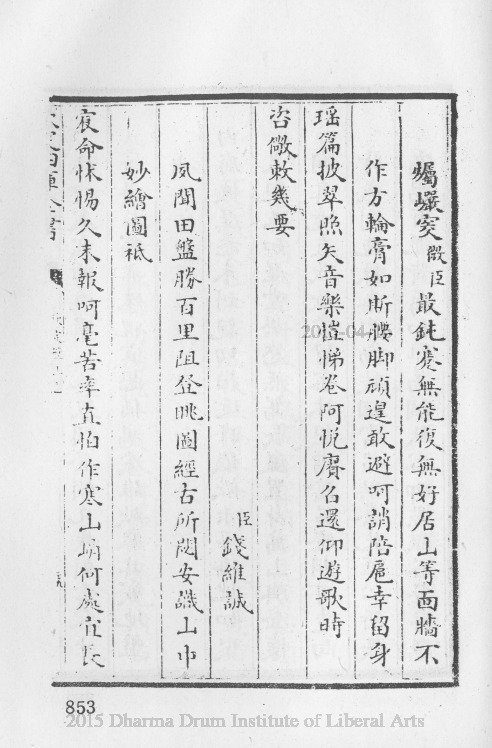 孎巘窔微臣最鈍蹇無能復無好居山等面牆不
作方輪膏如斯腰脚頑遑敢避呵誚陪扈幸留身
瑤篇披翠照矢音樂愷悌卷阿悅賡仍還仰遊歌時
咨儆敕幾要
臣錢維誠
夙聞田盤勝百里阻登眺圖經古所閱安識山中
妙繪圖祗
宸命怵惕久未報呵毫苦率真怕作寒山誚何處宜長
欽定四庫全書
853
2015 Dharma Drum Institute of Liberal Arts